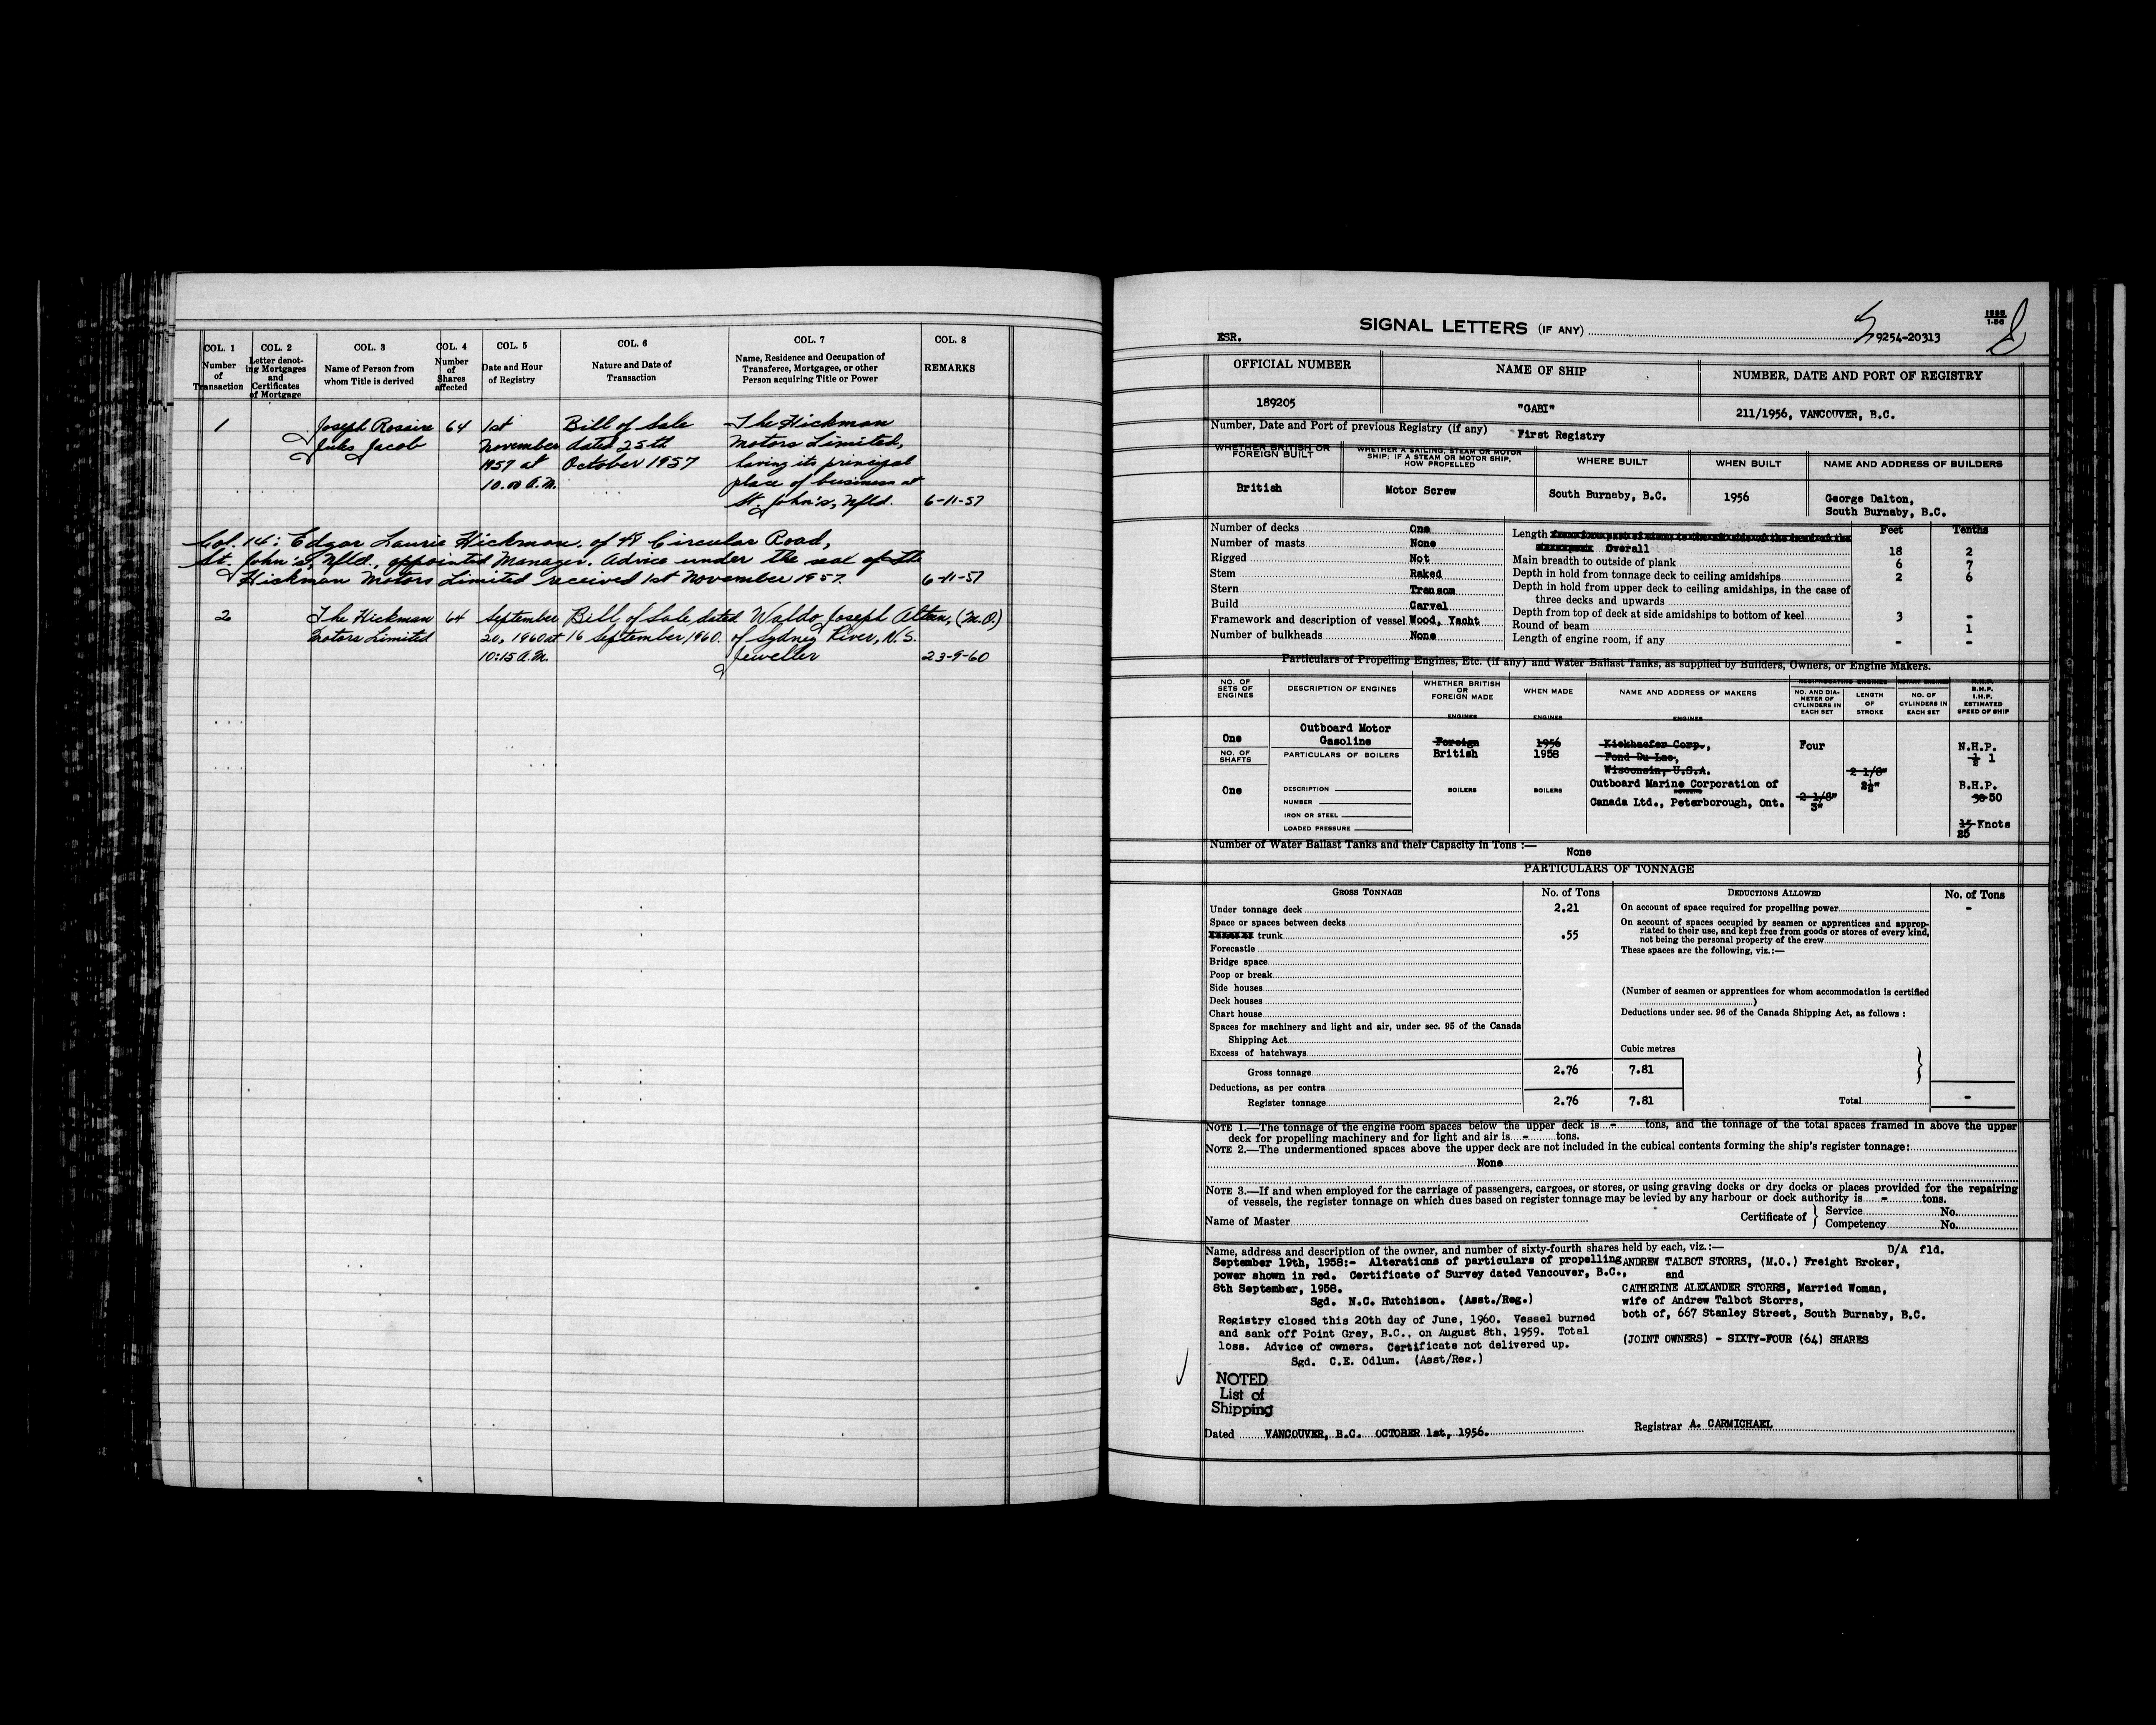 COL. 1 COL. 2 COL. 3 COL. 4 COL. 5 COL. 6 COL. 7 COL. 8
Number of Transaction
Letter denoting Mortgages and Certificates of Mortgage
Name of Person from whom Title is derived
Number of Shares affected
Date and Hour of Registry
Nature and Date of Transaction
Name, Residence and Occupation of Transferee, Mortgagee, or other Person acquiring Title or Power
REMARKS
1 Joseph Rosaire 64 1st Bill of Sale The Hickman
Jules Jacob November dated 25th Motors Limited,
1957 at October 1957 having its principal
10.00 A.M. place of business at
St. John's, Nfld. 6-11-57
Col. 14: Edgar Laurie Hickman of 48 Circular Road,
St. John's, Nfld., appointed Manager. Advice under the seal of The
Hickman Motors Limited received 1st November 1957. 6-11-57
2 The Hickman 64 September Bill of Sale dated Waldo Joseph Allen, (M.O.)
Motors Limited 20, 1960 at 16 September, 1960. of Sydney River, N.S.
10:15 A.M. Jeweller 23-9-60
ESR.
SIGNAL LETTERS (IF ANY)
9254-20313
OFFICIAL NUMBER
NAME OF SHIP
NUMBER, DATE AND PORT OF REGISTRY
189205
"GABI"
211/1956, VANCOUVER, B.C.
Number, Date and Port of previous Registry (if any) First Registry
WHETHER BRITISH OR FOREIGN BUILT
WHETHER A SAILING, STEAM OR MOTOR SHIP; IF A STEAM OR MOTOR SHIP, HOW PROPELLED
WHERE BUILT
WHEN BUILT
NAME AND ADDRESS OF BUILDERS
British
Motor Screw
South Burnaby, B.C.
1956
George Dalton,
South Burnaby, B.C.
Number of decks One
Number of masts None
Rigged Not
Stem Raked
Stern Transom
Build Carvel
Framework and description of vessel Wood, Yacht
Number of bulkheads None
Feet Tenths
Length
Overall 18 2
Main breadth to outside of plank 6 7
Depth in hold from tonnage deck to ceiling amidships 2 6
Depth in hold from upper deck to ceiling amidships, in the case of
three decks and upwards
Depth from top of deck at side amidships to bottom of keel 3 -
Round of beam 1
Length of engine room, if any - -
Particulars of Propelling Engines, Etc. (if any) and Water Ballast Tanks, as supplied by Builders, Owners, or Engine Makers.
NO. OF SETS OF ENGINES
DESCRIPTION OF ENGINES
WHETHER BRITISH OR FOREIGN MADE
WHEN MADE
NAME AND ADDRESS OF MAKERS
RECIPROCATING ENGINES
NO. AND DIAMETER OF CYLINDERS IN EACH SET
LENGTH OF STROKE
NO. OF CYLINDERS IN EACH SET
N.H.P.
B.H.P.
I.H.P.
ESTIMATED SPEED OF SHIP
ENGINES ENGINES ENGINES
One
Outboard Motor
Gasoline
Foreign
British
1956
1958
Kiekhaefer Corp.,
Fond Du Lac,
Wisconsin, U.S.A.
Outboard Marine Corporation of
Canada Ltd., Peterborough, Ont.
Four
2-1/8"
3"
2-1/8"
2½"
N.H.P.
½ 1
B.H.P.
30 50
15 Knots
25
NO. OF SHAFTS
One
PARTICULARS OF BOILERS
DESCRIPTION
NUMBER
IRON OR STEEL
LOADED PRESSURE
BOILERS BOILERS
Number of Water Ballast Tanks and their Capacity in Tons :— None
PARTICULARS OF TONNAGE
GROSS TONNAGE No. of Tons
Under tonnage deck 2.21
Space or spaces between decks
trunk .55
Forecastle
Bridge space
Poop or break
Side houses
Deck houses
Chart house
Spaces for machinery and light and air, under sec. 95 of the Canada
Shipping Act
Excess of hatchways
Cubic metres
Gross tonnage 2.76 7.81
Deductions, as per contra
Register tonnage 2.76 7.81
DEDUCTIONS ALLOWED No. of Tons
On account of space required for propelling power -
On account of spaces occupied by seamen or apprentices and approp-
riated to their use, and kept free from goods or stores of every kind,
not being the personal property of the crew
These spaces are the following, viz.:—
(Number of seamen or apprentices for whom accommodation is certified
)
Deductions under sec. 96 of the Canada Shipping Act, as follows :
Total -
NOTE 1.—The tonnage of the engine room spaces below the upper deck is - tons, and the tonnage of the total spaces framed in above the upper
deck for propelling machinery and for light and air is - tons.
NOTE 2.—The undermentioned spaces above the upper deck are not included in the cubical contents forming the ship's register tonnage:
None
NOTE 3.—If and when employed for the carriage of passengers, cargoes, or stores, or using graving docks or dry docks or places provided for the repairing
of vessels, the register tonnage on which dues based on register tonnage may be levied by any harbour or dock authority is - tons.
Name of Master
Certificate of Service No.
Competency No.
Name, address and description of the owner, and number of sixty-fourth shares held by each, viz.:— D/A fld.
September 19th, 1958:- Alterations of particulars of propelling
power shown in red. Certificate of Survey dated Vancouver, B.C.,
8th September, 1958.
Sgd. N.C. Hutchison. (Asst./Reg.)
Registry closed this 20th day of June, 1960. Vessel burned
and sank off Point Grey, B.C., on August 8th, 1959. Total
loss. Advice of owners. Certificate not delivered up.
Sgd. C.E. Odlum. (Asst/Reg.)
ANDREW TALBOT STORRS, (M.O.) Freight Broker,
and
CATHERINE ALEXANDER STORRS, Married Woman,
wife of Andrew Talbot Storrs,
both of, 667 Stanley Street, South Burnaby, B.C.
(JOINT OWNERS) - SIXTY-FOUR (64) SHARES
NOTED
List of
Shipping
Dated VANCOUVER, B.C. OCTOBER 1st, 1956.
Registrar A. CARMICHAEL